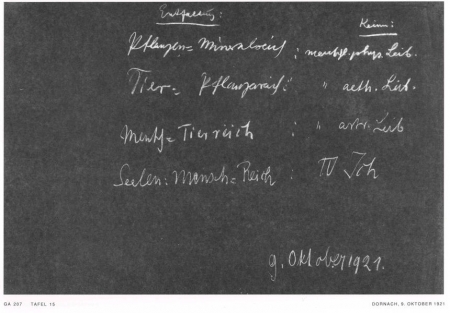 Entfaltung: Keim:
Pflanzen = Mineralreich : menschl. phys. Leib.
Tier = Pflanzenreich : " aeth. Leib.
Mensch = Tierreich : " astr. Leib
Seelen : Mensch = Reich : IV Ich
9. Oktober 1921.
GA 207 TAFEL 15 DORNACH, 9. OKTOBER 1921